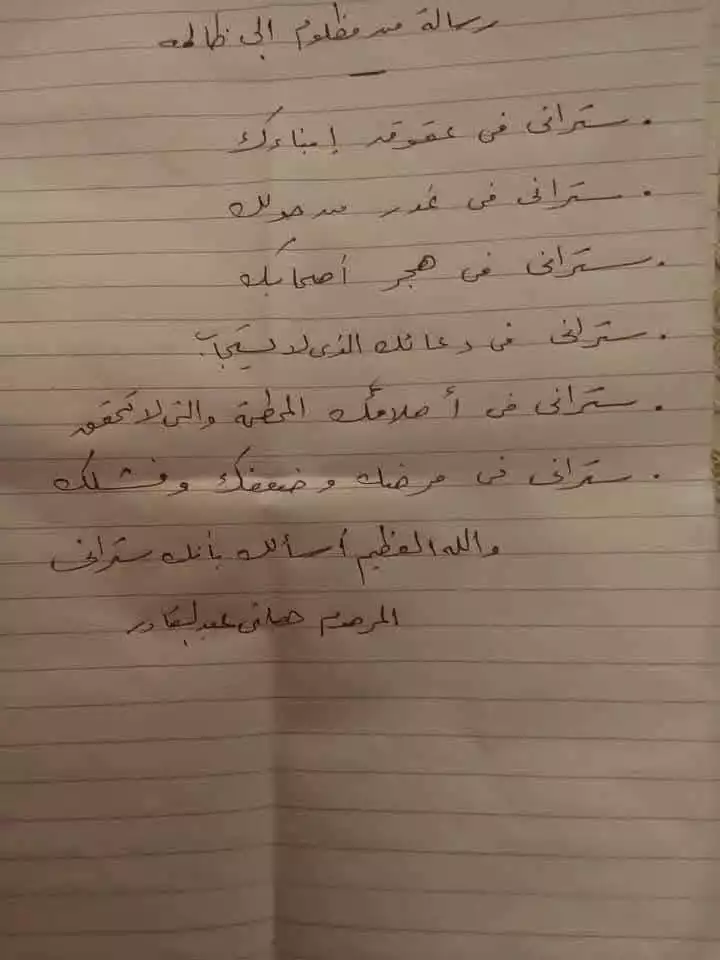 رسالة من مظلوم إلى ظالمه
. ستراني في عقوق إبناءك
. ستراني في غدر من حولك
. ستراني في هجر أصحابك
. ستراني في دعائك الذي لا يستجاب
. ستراني في أحلامك المحطمة والتي لا تحقق
. ستراني في مرضك وضعفك وفشلك
والله العظيم أسألك بأنك ستراني
المرحوم هاني عبد القادر